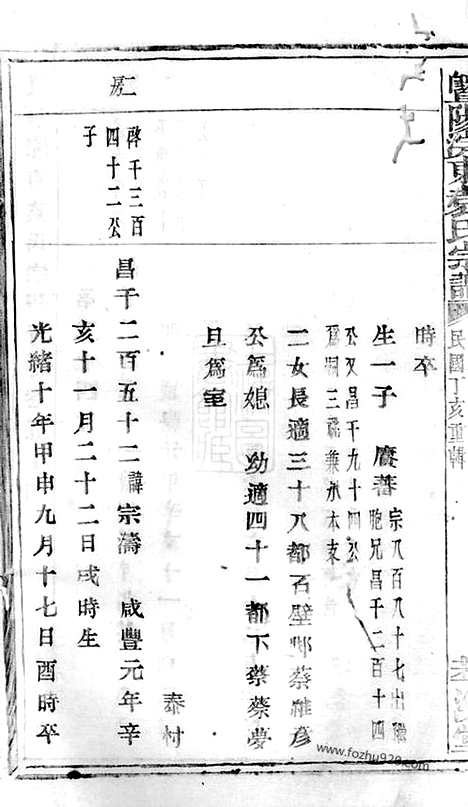 民國丁亥重輯
時卒
生一子 賡蕃 宗八百八十七出繼
胞兄昌千二百十四
公又昌千九十四公
為嗣三承兼承本支
二女長適三十八都石壁鄔蔡維彦
公爲媳 幼適四十一都下蔡蔡夢
旦爲室
泰村
昌千二百五十二諱宗濤 咸豐元年辛
亥十一月二十二日戌時生
光緒十年甲申九月十七日酉時卒
二房
啓千三百
四十二公
子
www.fozhu920.com